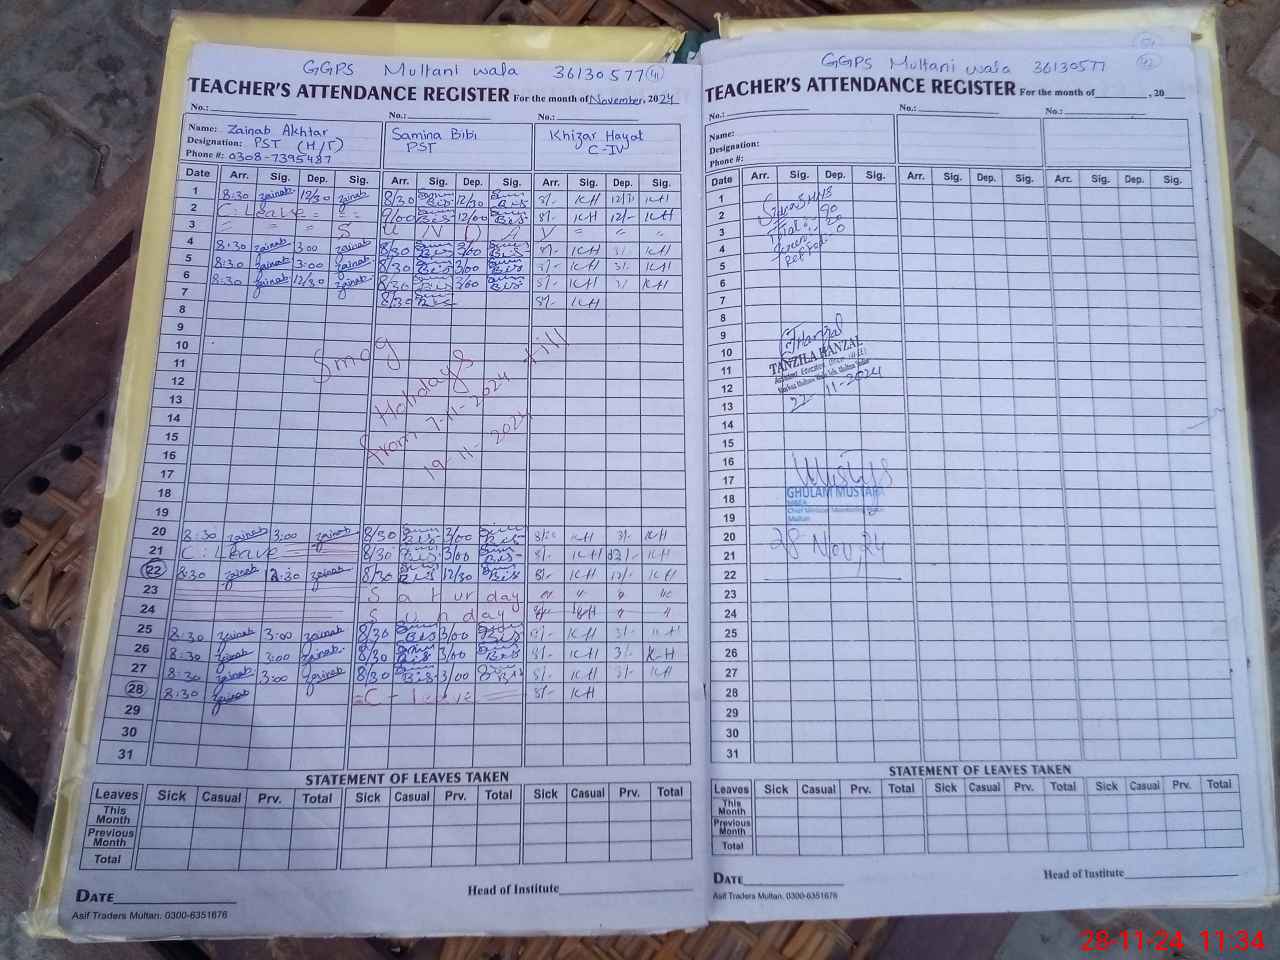 GGPS Multani wala 36130577 41
TEACHER'S ATTENDANCE REGISTER For the month of November, 2024
No.: No.: No.:
Name: Zainab Akhtar Samina Bibi Khizar Hayat
Designation: PST (H/T) PST C-IV
Phone #: 0308-7395487
Date Arr. Sig. Dep. Sig. Arr. Sig. Dep. Sig. Arr. Sig. Dep. Sig.
1 8:30 zainab 12/30 zainab 8/30 Bis 12/30 Bis 8/- KH KH
2 C: Leave 9/00 Bis 12/00 Bis 8/- KH 12/- KH
3 S U N D A Y
4 8:30 zainab 3:00 zainab 8/30 Bis 3/00 Bis 8/- KH 3/- KH
5 8:30 zainab 3:00 zainab 8/30 Bis 3/00 Bis 8/- KH 3/- KH
6 8:30 zainab 12/30 zainab 8/30 Bis 3/00 Bis 8/- KH 3/- KH
7 8/30 Bis 8/- KH
8
9
10
11
12
13
14
15
16
17
18
19
Smog
Holidays
from 7-11-2024 till
19-11-2024
20 8:30 zainab 3:00 zainab 8/30 Bis 3/00 Bis 8/- KH 3/- KH
21 C: Leave 8/30 Bis 3/00 Bis 8/- KH 12/- KH
22 8:30 zainab 12:30 zainab 8/30 Bis 12/30 Bis 8/- KH 12/- KH
23 Saturday
24 Sunday
25 8:30 zainab 3:00 zainab 8/30 Bis 3/00 Bis 8/- KH 3/- KH
26 8:30 zainab 3:00 zainab 8/30 Bis 3/00 Bis 8/- KH 3/- KH
27 8:30 zainab 3:00 zainab 8/30 Bis 3/00 Bis 8/- KH 3/- KH
28 8:30 zainab C - leave 8/- KH
29
30
31
STATEMENT OF LEAVES TAKEN
Leaves Sick Casual Prv. Total Sick Casual Prv. Total Sick Casual Prv. Total
This Month
Previous Month
Total
DATE Head of Institute
Asif Traders Multan. 0300-6351676
GGPS Multani wala 36130577 42
TEACHER'S ATTENDANCE REGISTER For the month of , 20
No.: No.: No.:
Name:
Designation:
Phone #:
Date Arr. Sig. Dep. Sig. Arr. Sig. Dep. Sig. Arr. Sig. Dep. Sig.
1
2
3
4
5
6
7
8
9
10
11
12
13
14
15
16
17
18
19
20
21
22
23
24
25
26
27
28
29
30
31
TANZILA HANZAL
22-11-2024
GHULAM MUSTAFA
Multan
28 Nov 24
STATEMENT OF LEAVES TAKEN
Leaves Sick Casual Prv. Total Sick Casual Prv. Total Sick Casual Prv. Total
This Month
Previous Month
Total
DATE Head of Institute
Asif Traders Multan. 0300-6351676
28-11-24 11:34